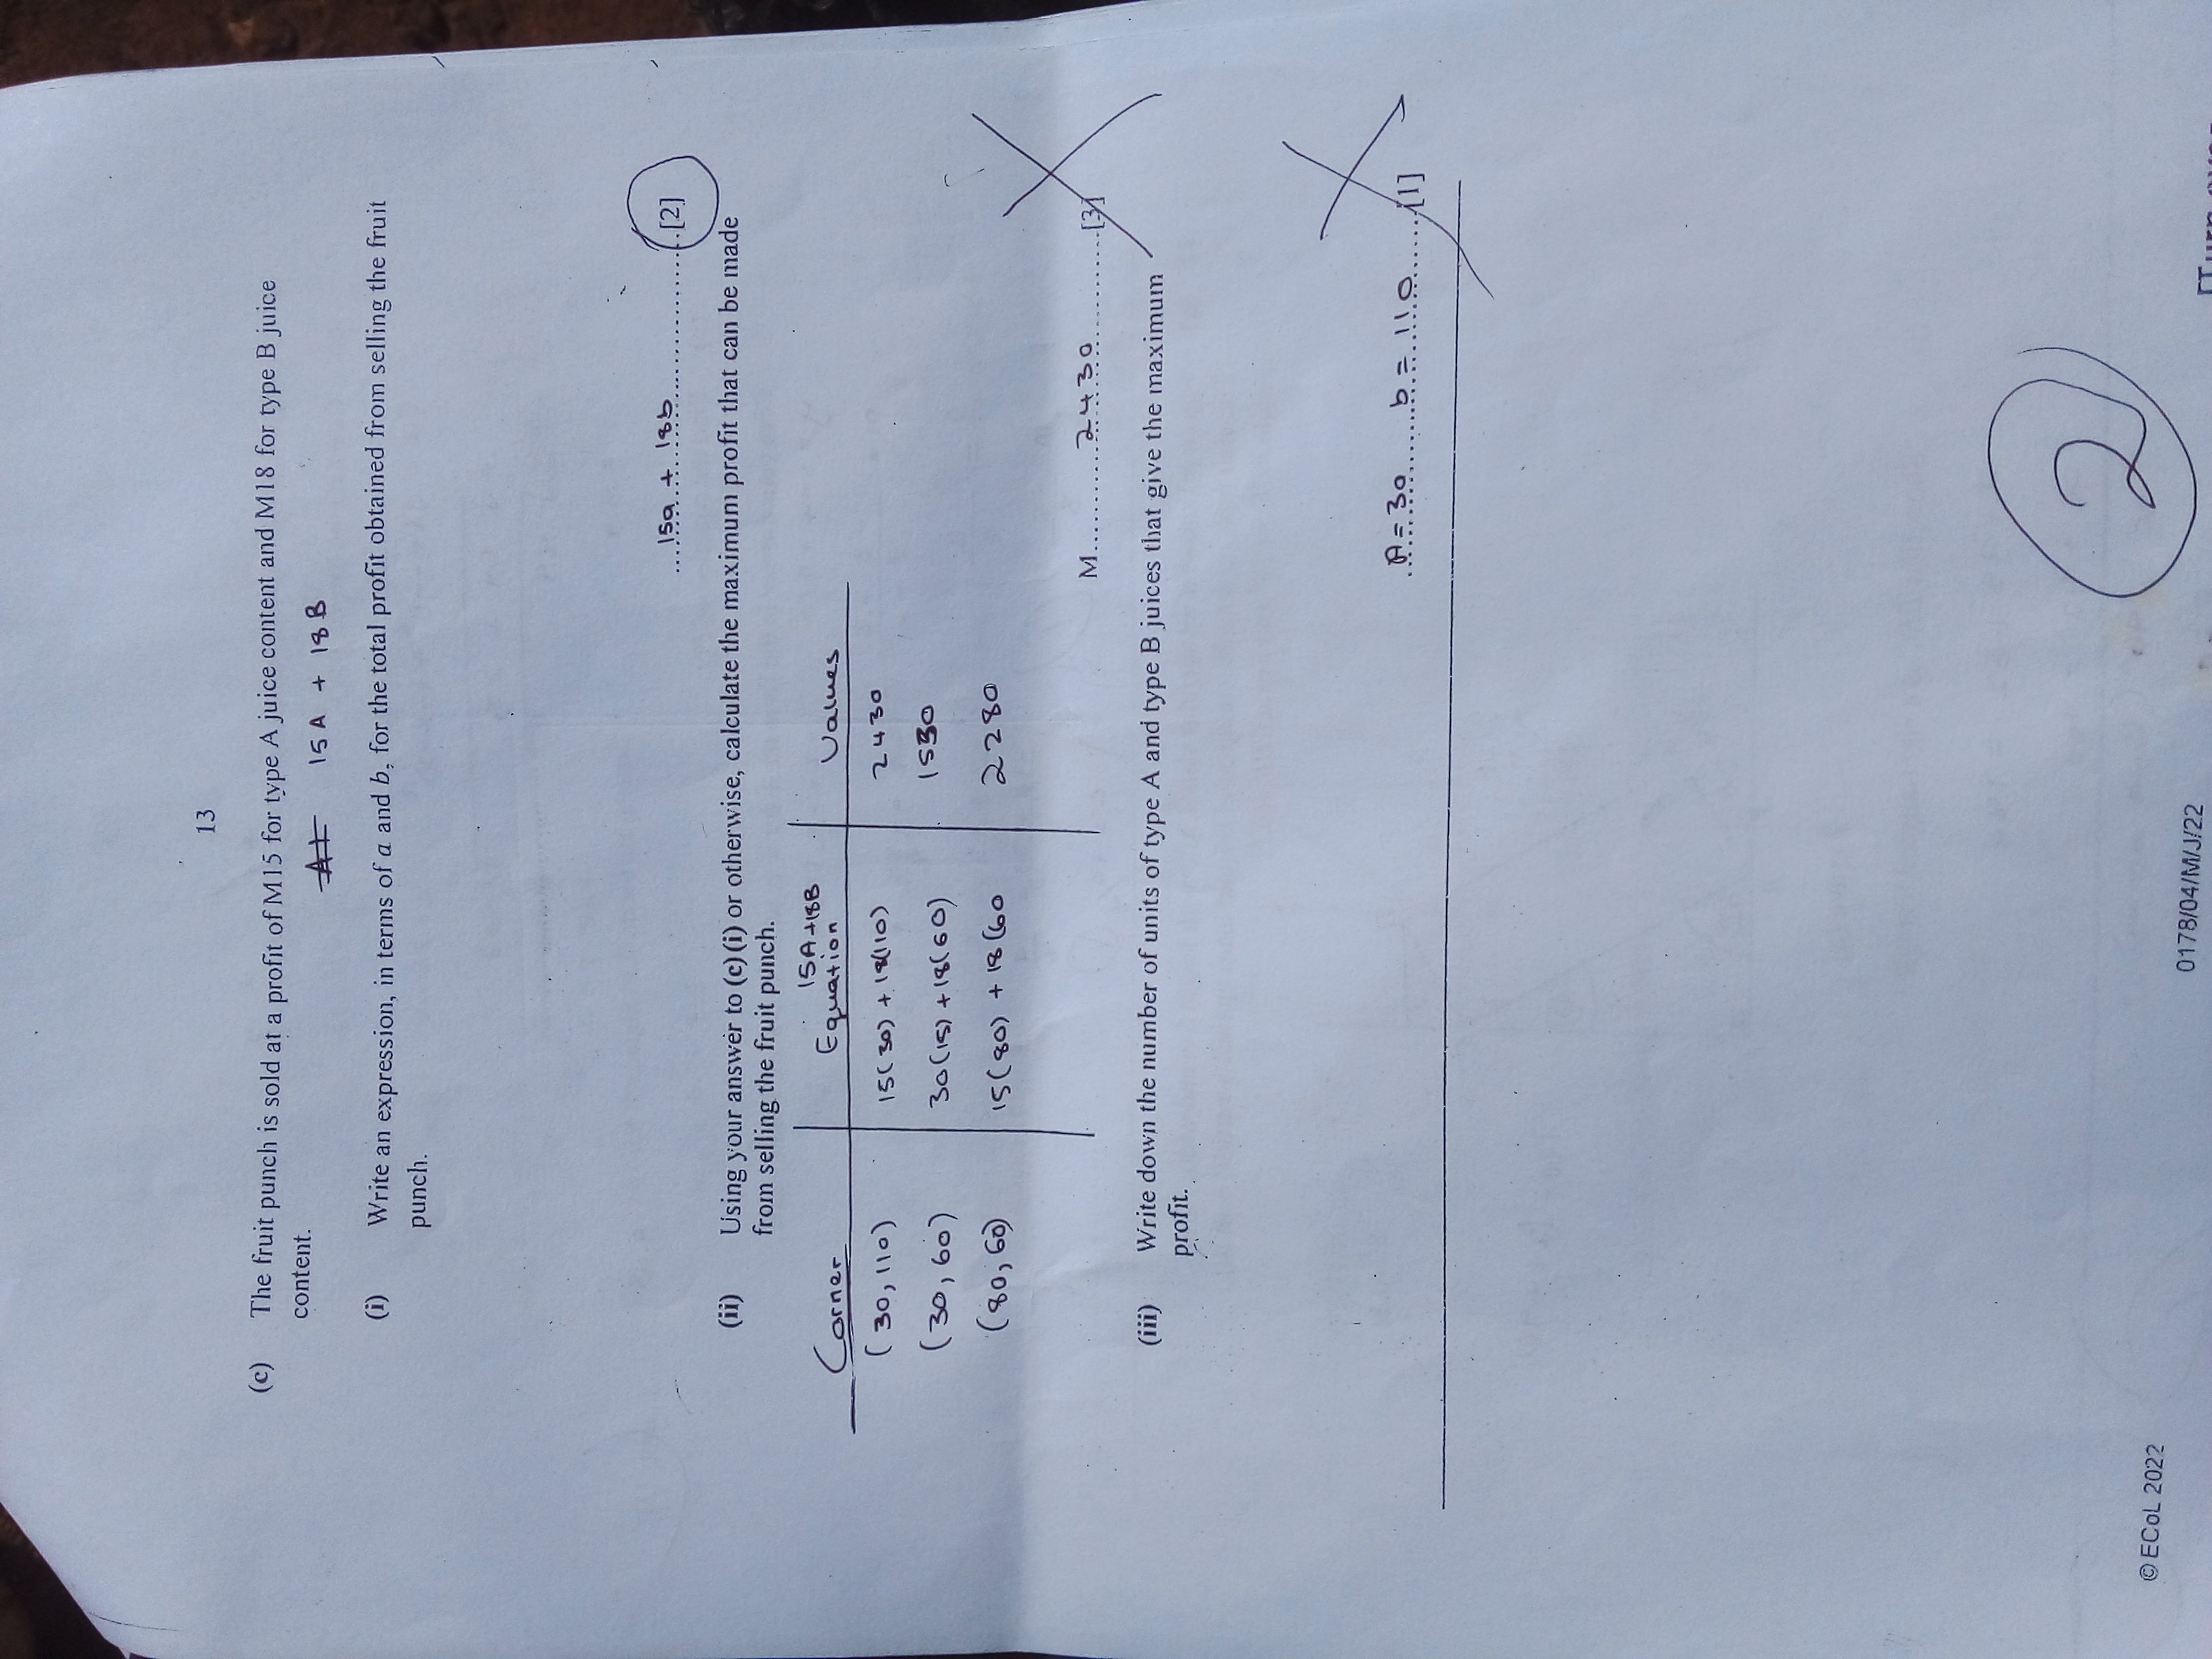 13
(c) The fruit punch is sold at a profit of M15 for type A juice content and M18 for type B juice
content.
15A + 18B
(i) Write an expression, in terms of a and b, for the total profit obtained from selling the fruit
punch.
15a + 18b [2]
(ii) Using your answer to (c)(i) or otherwise, calculate the maximum profit that can be made
from selling the fruit punch.
15A+18B
Corner Equation Values
(30, 110) 15(30) + 18(110) 2430
(30, 60) 30(15) + 18(60) 1530
(80, 60) 15(80) + 18(60 2280
M 2430 [3]
(iii) Write down the number of units of type A and type B juices that give the maximum
profit.
A = 30 b = 110 [1]
2
© ECoL 2022
0178/04/M/J/22